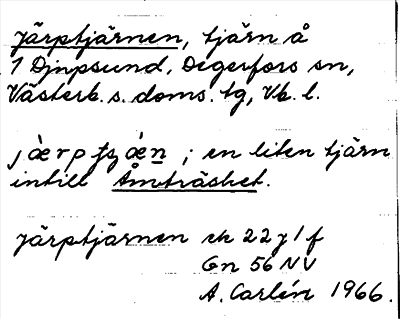 Järptjärnen, tjärn å
1 Djupsund, Degerfors sn,
Västerb. s. doms. tg, Vb. l.
en liten tjärn
intill Åmträsket.
Järptjärnen ek 22 J 1 f
Gn 56 NV
A. Carlén 1966.